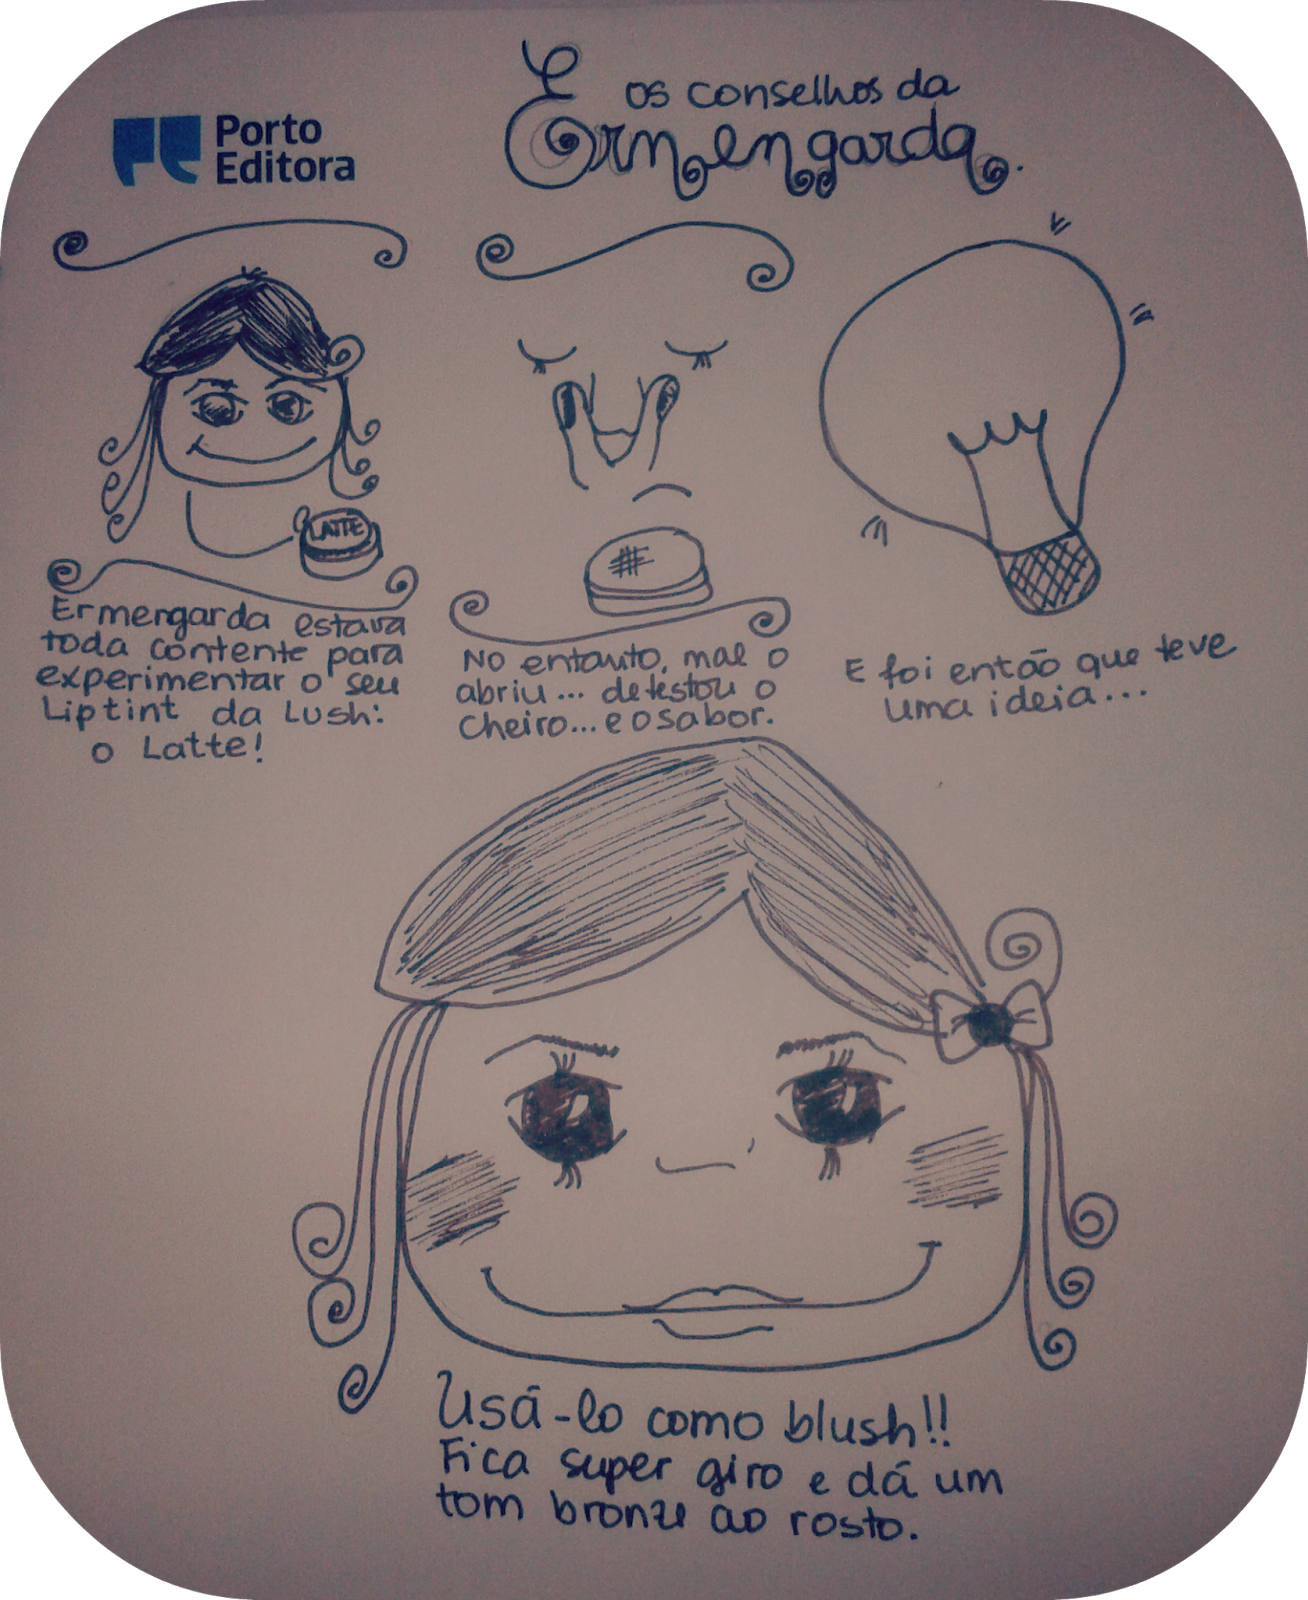 Porto
Editora
E os conselhos da
Ermengarda.
LATTE
Ermengarda estava
toda contente para
experimentar o seu
Liptint da Lush:
o Latte!
No entanto, mal o
abriu... detestou o
cheiro... e o sabor.
E foi então que teve
uma ideia...
Usá-lo como blush!!
Fica super giro e dá um
tom bronze ao rosto.